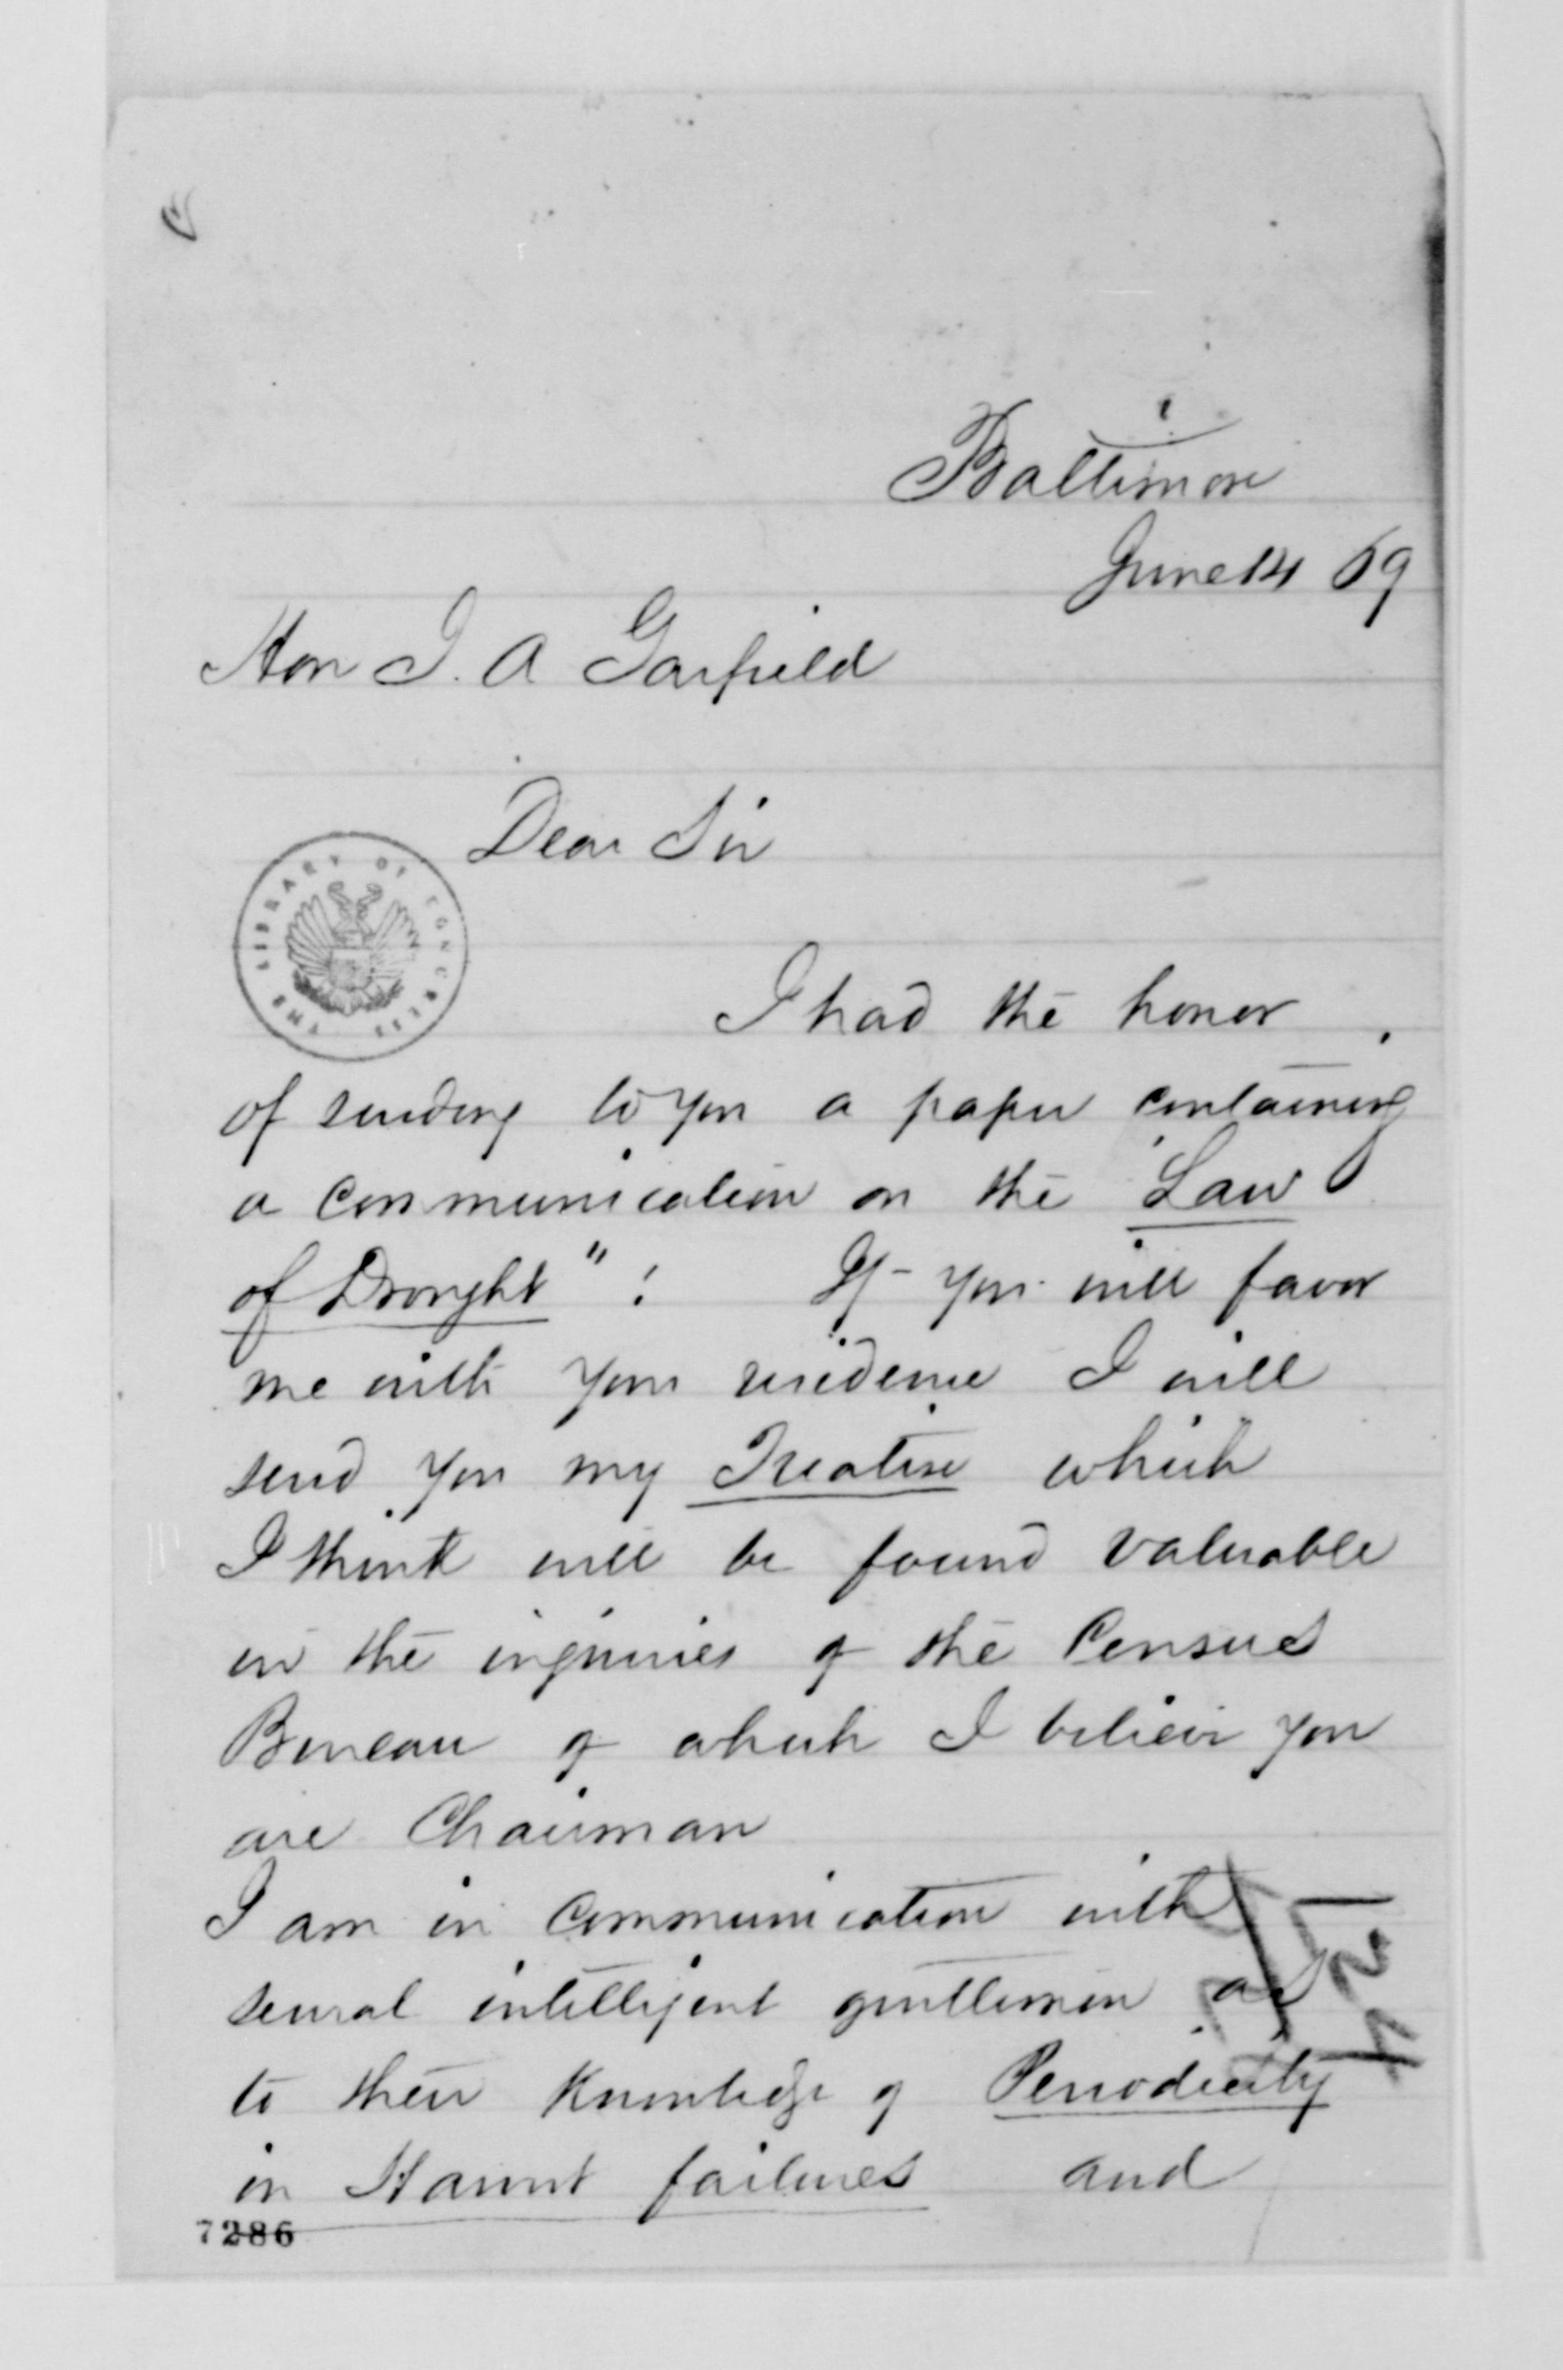 Baltimore
June 14 69
Hon J. A Garfield
Dear Sir
THE LIBRARY OF CONGRESS
I had the honor
of sending to you a paper containing
a communication on the "Law
of Drought" !  If you will favor
me with your residence I will
send you my Treatise which
I think will be found valuable
in the inquiries of the Census
Bureau of which I believe you
are Chairman
I am in communication with
several intelligent gentlemen as
to their Knowledge of Periodicity
in Harvest failures and
7286